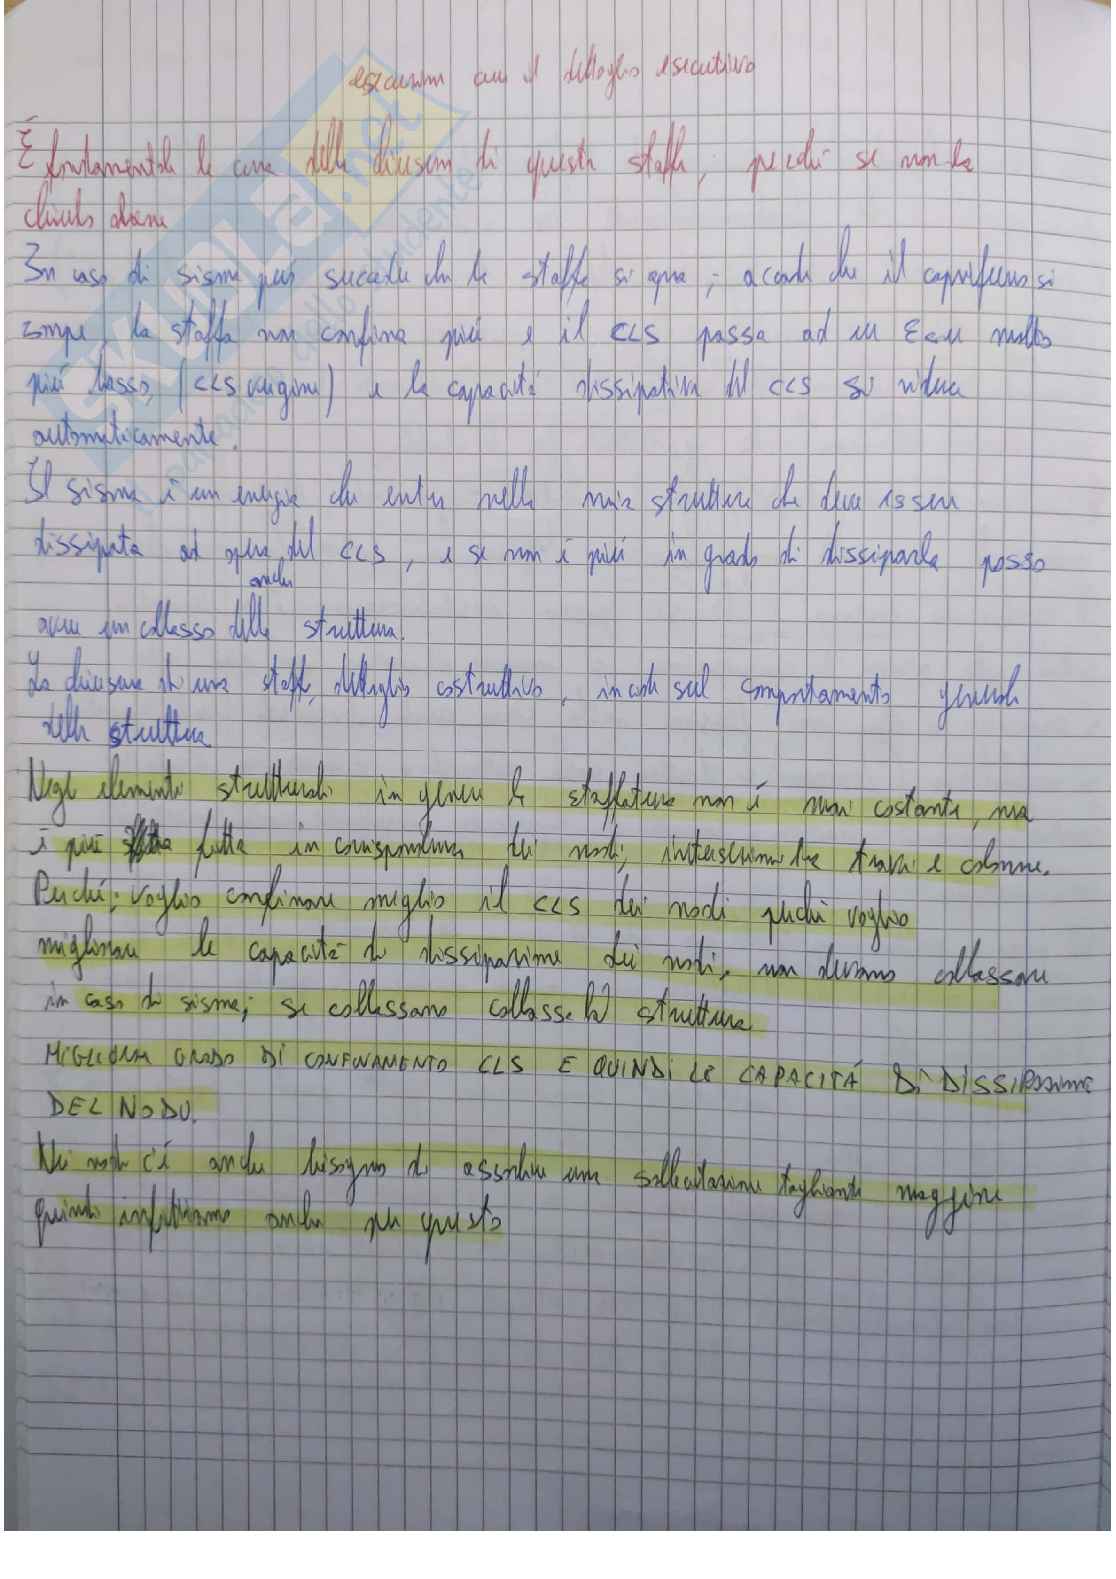 con il dettaglio esecutivo
È fondamentale la cura della chiusura di questa staffa, perché se non la
chiudo
In caso di sisma può succede che la staffa si apra; accade che il copriferro si
rompe, la staffa non confina più e il CLS passa ad un Ecu molto
più basso, (CLS vergine) e la capacità dissipativa del CLS si riduce
automaticamente.
Il sisma è un energia che entra nella mia struttura che deve essere
dissipata ad opera del CLS, e se non è più in grado di dissiparla posso
anche
avere un collasso della struttura.
La chiusura di una staffa, dettaglio costruttivo, incide sul comportamento generale
della struttura
Negli elementi strutturali in genere la staffatura non è mai costante, ma
è più fitta in corrispondenza dei nodi, intersezione tra travi e colonne.
Perché: voglio confinare meglio il CLS dei nodi perché voglio
migliorare la capacità di dissipazione dei nodi, non devono collassare
in caso di sisma; se collassano collassa la struttura
MIGLIORA GRADO DI CONFINAMENTO CLS E QUINDI LA CAPACITÁ DI DISSIPAZIONE
DEL NODO.
Nei nodi c'è anche bisogno di assorbire una sollecitazione tagliante maggiore
quindi infittiamo anche per questo
SKUOLA.net